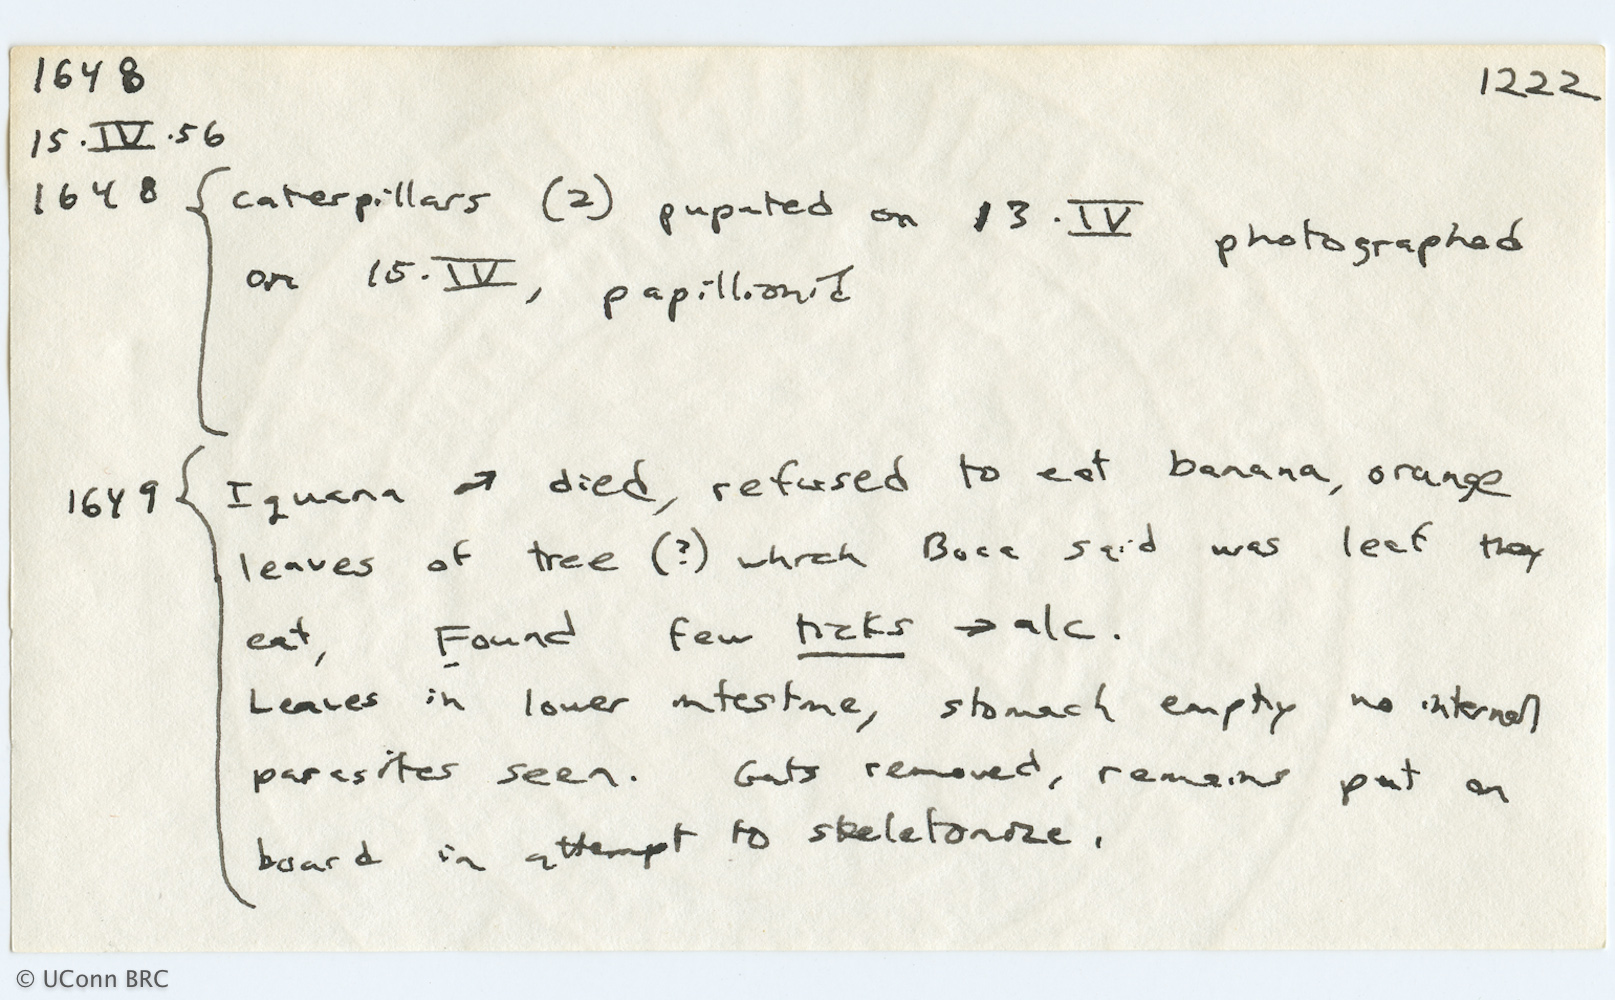 1648 1222
15.IV.56
1648 { caterpillars (2) pupated on 13.IV photographed
on 15.IV, papillionid
1649 { Iguana → died, refused to eat banana, orange
leaves of tree (?) which Boca said was leaf they
eat, Found few ticks → alc.
Leaves in lower intestine, stomach empty no internal
parasites seen. Guts removed, remains put on
board in attempt to skeletonize.
© UConn BRC